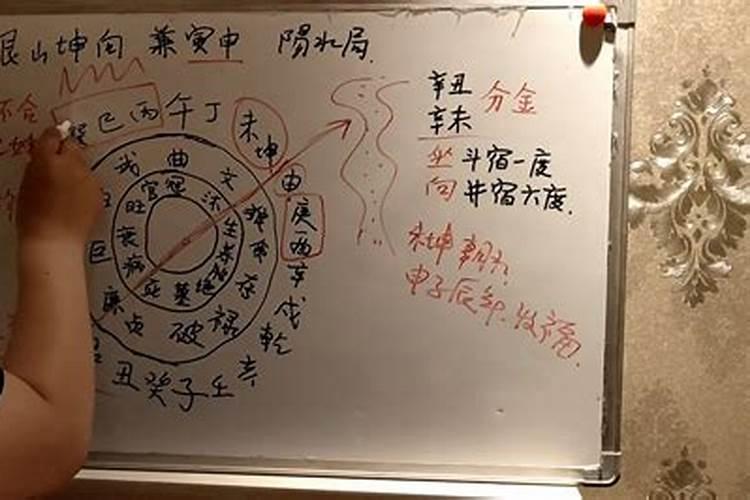 艮山坤向 兼寅申 陽水局
不合
巽巳丙午丁
未坤
申
庚酉辛
戌乾
亥
壬子癸丑
武曲文
破禄存
廉貞
巨
冠官旺衰病死墓绝
沐生
辛丑
辛未
分金
坐斗宿一度
向井宿六度.
未坤朝水
申子辰年.发福.